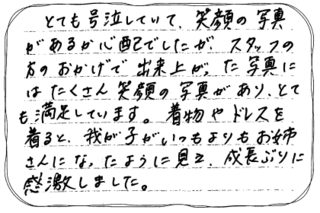 とても号泣していて、笑顔の写真
があるが心配でしたが、スタッフの
方のおかげで出来上がった写真に
はたくさん笑顔の写真があり、とて
も満足しています。着物やドレスを
着ると、我が子がいつもよりもお姉
さんになったように見え、成長ぶりに
感激しました。